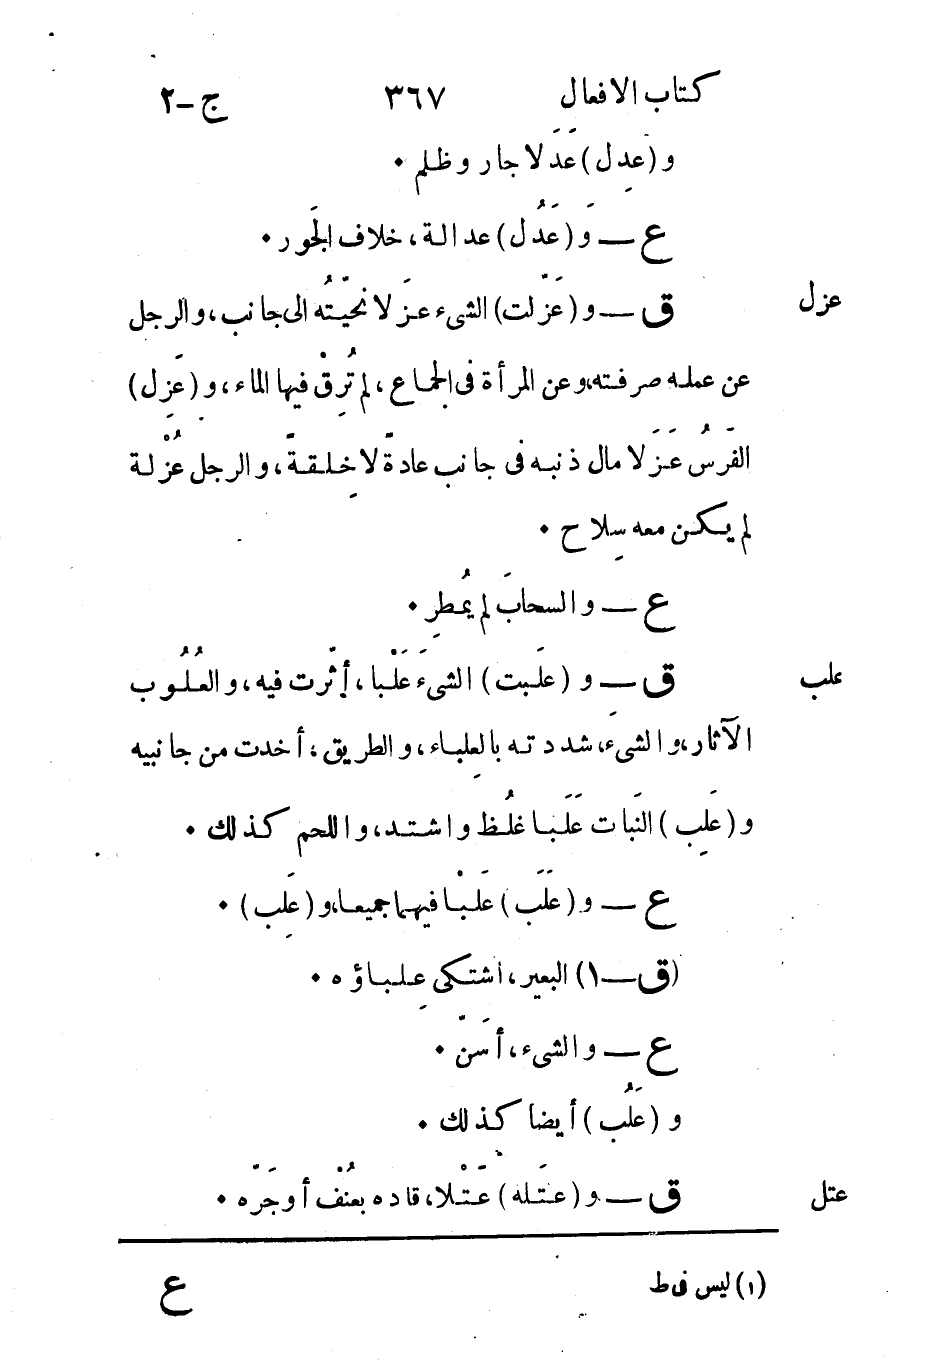 كتاب الافعال ٣٦٧ ج-٢
و (عدِل) عَدَلا جار وظلم •
ع — وَ (عَدُل) عدالة، خلاف الجَور •
عزل
ق — و (عَزّلت) الشىء عزَلا نحيّتُه الى جانب، والرجل
عن عمله صرفته، وعن المرأة فى الجماع، لم تُرِقْ فيها الماء، و (عَزِل)
الفَرَسُ عَزَلا مال ذنبه فى جانب عادةً لا خِلقةً، والرجل عُزْلة
لم يكن معه سِلاح •
ع — و السحابَ لم يُمطِر •
علب
ق — و (علَبت) الشىءَ عَلْبا، أثّرت فيه، والعُلُوب
الآثار، و الشىءَ، شددته بالعِلباء، والطريق، أخدت من جانبيه
و (علِب) النَبات عَلَبا غلُظ واشتد، واللحم كذلك •
ع — و (عَلَب) عَلْبا فيهما جميعا، و (عَلِب)
(ق — ١) البعير، اشتكى عِلباؤه •
ع — و الشىء، أسَنّ •
و (عَلُب) أيضا كذلك •
عتل
ق — و (عتَله) عَتْلا، قاده بعُنْف أو جَرّه •
(١) ليس فى ط
ع